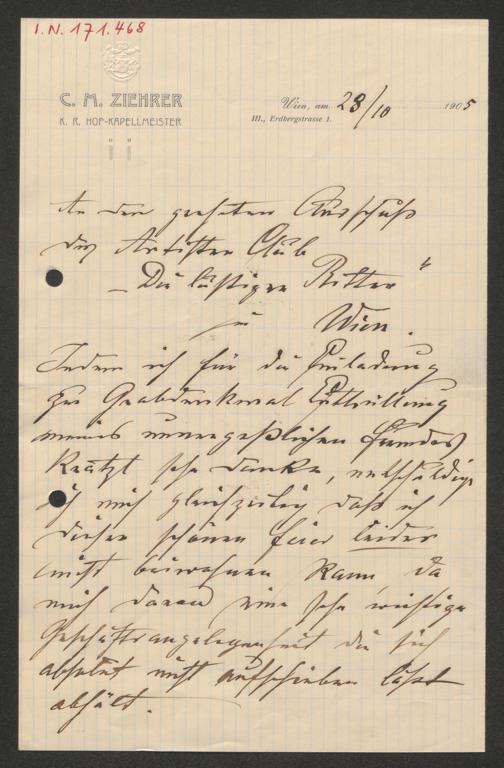 I. N. 171.468
C. M. ZIEHRER
K. K. HOF-KAPELLMEISTER
Wien, am 28/10 1905
III., Erdbergstrasse 1.
An den geehrten Ausschuß
des Artisten Club
„Die lustigen Ritter"
zu Wien.
Indem ich für die Einladung
zur Grabdenkmal Enthüllung
meines unvergeßlichen Freundes
Kratzl sehr danke, entschuldige
ich mich gleichzeitig daß ich
dieser schönen Feier leider
nicht beiwohnen kann, da
mich daran eine sehr wichtige
Geschäftsangelegenheit die sich
absolut nicht aufschieben läßt
abhält.